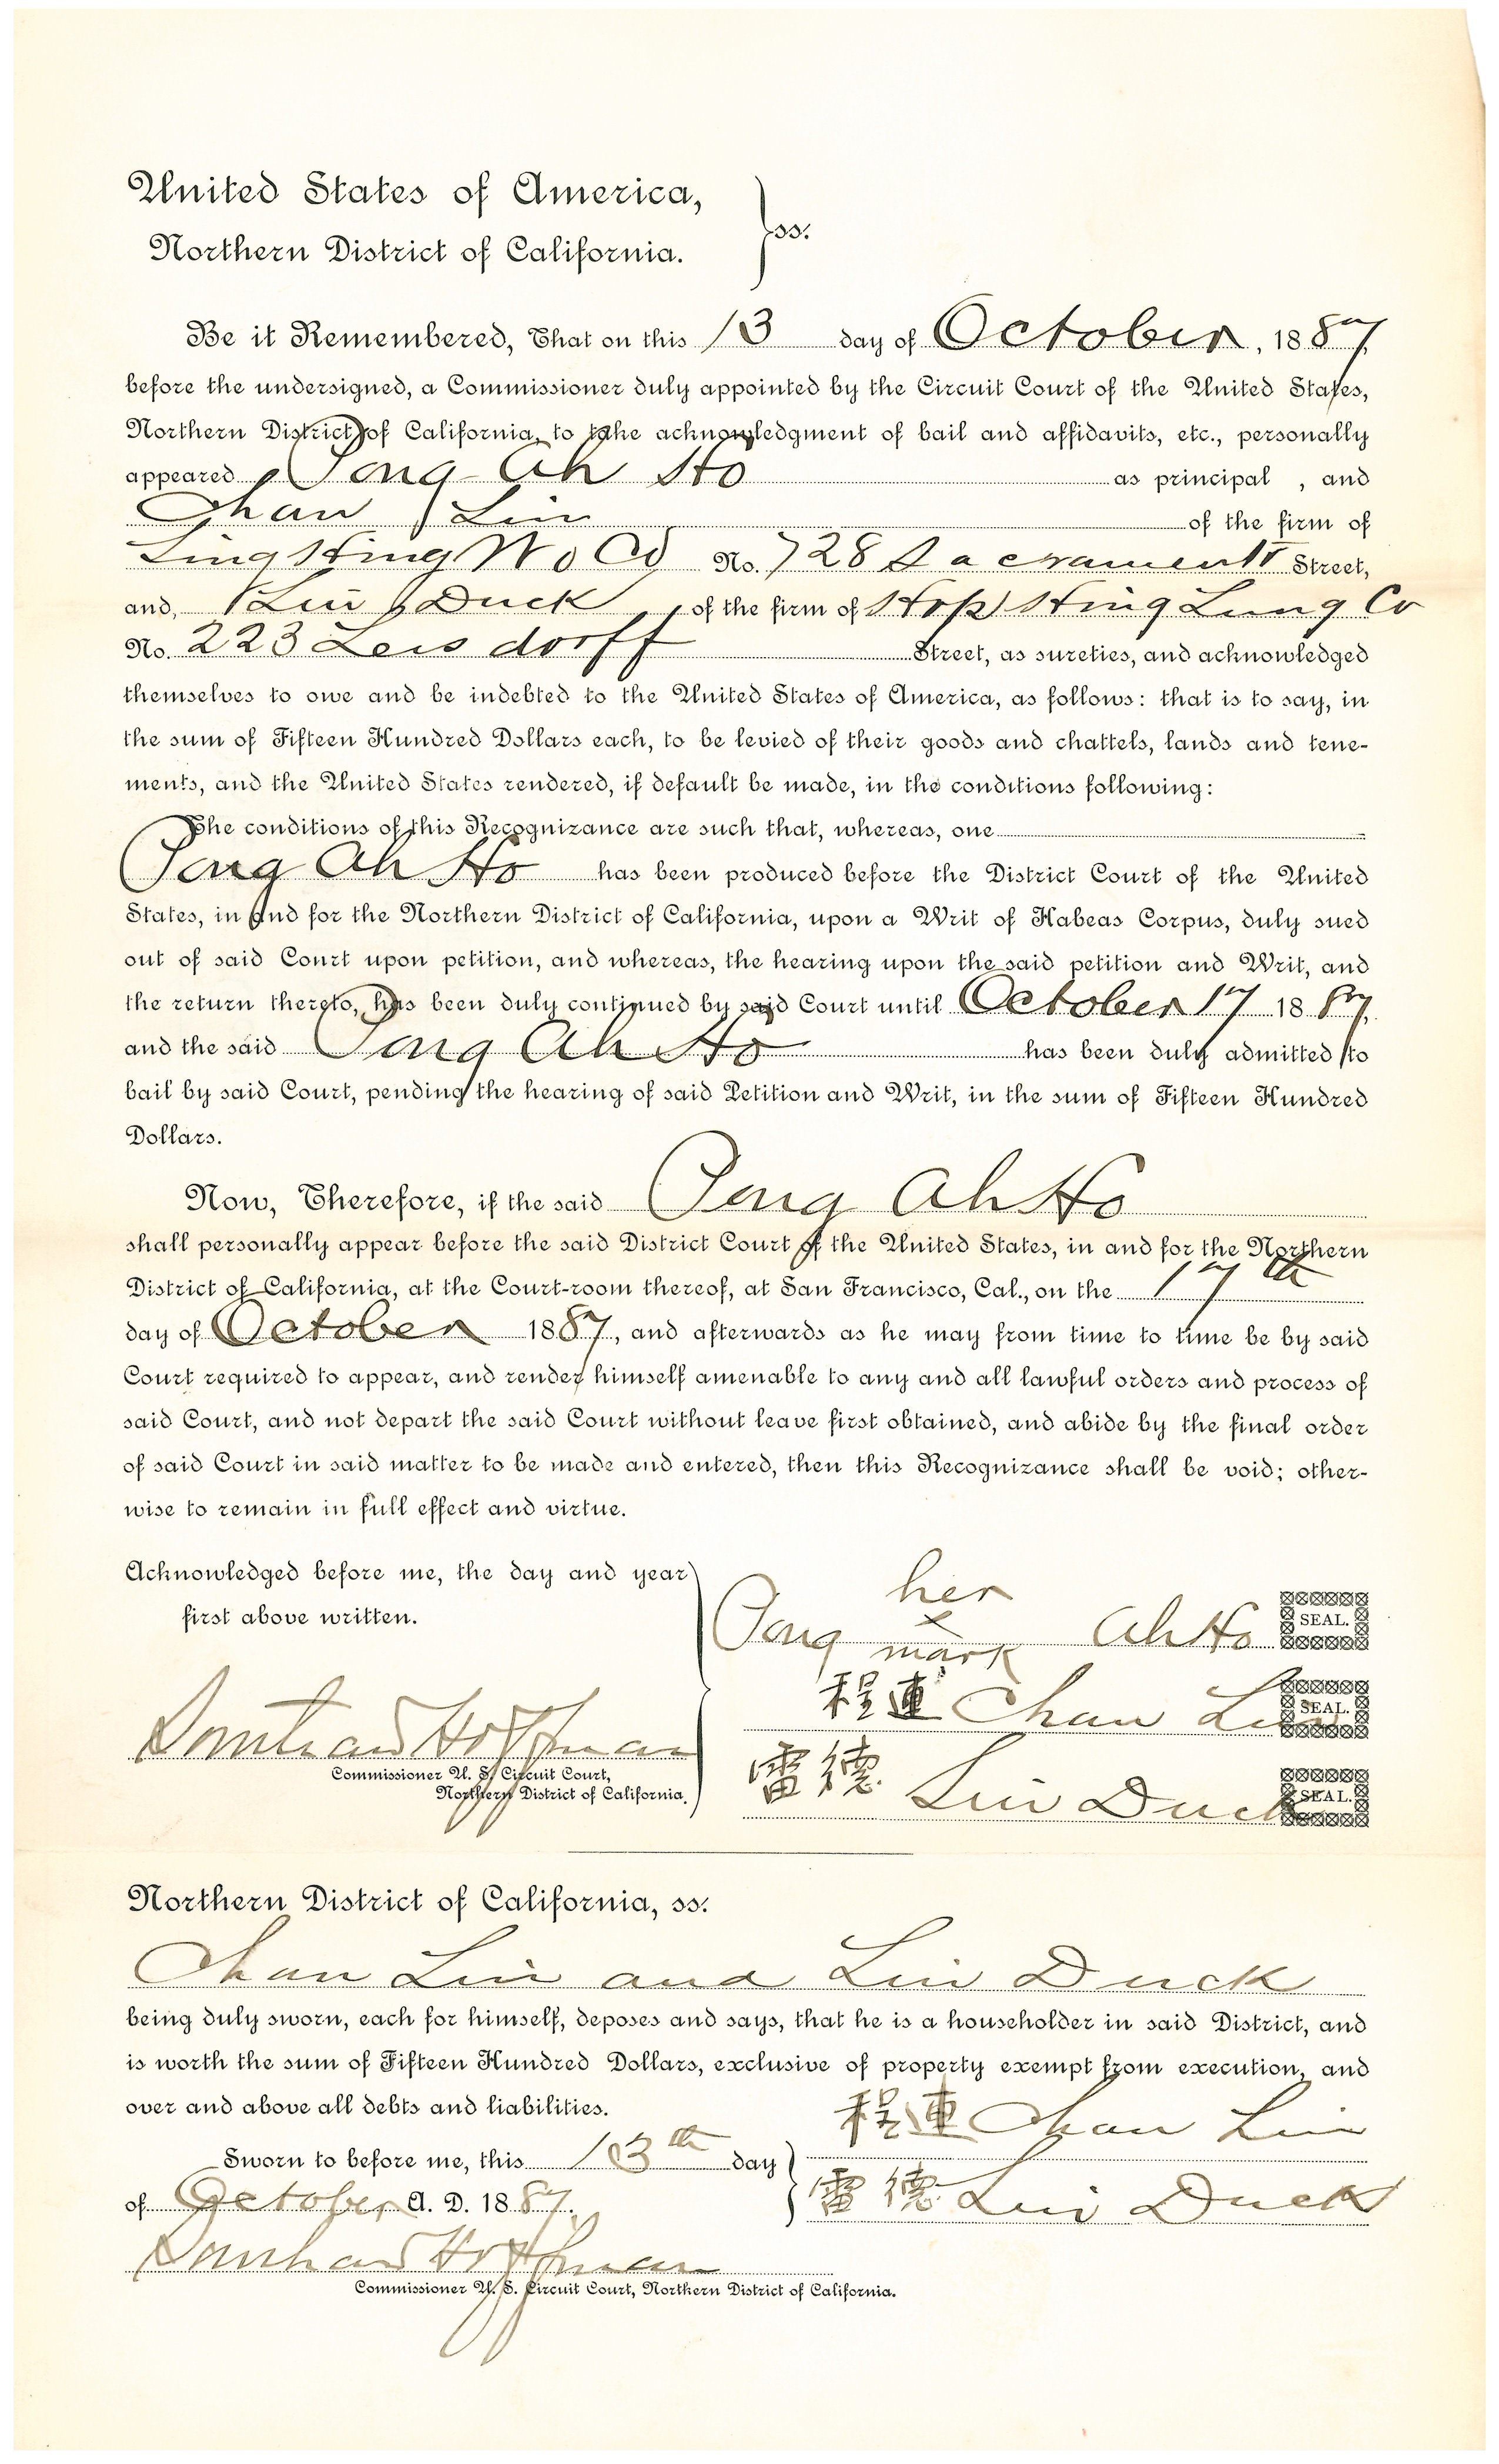 United States of America,
Northern District of California. } ss.
Be it Remembered, That on this 13 day of October, 1887,
before the undersigned, a Commissioner duly appointed by the Circuit Court of the United States,
Northern District of California, to take acknowledgment of bail and affidavits, etc., personally
appeared Pong Ah Ho as principal , and
Chan Lin of the firm of
Sing Hing Wo Co No. 728 Sacramento Street,
and, Lui Duck of the firm of Hop Hing Lung Co
No. 223 Leisdorff Street, as sureties, and acknowledged
themselves to owe and be indebted to the United States of America, as follows: that is to say, in
the sum of Fifteen Hundred Dollars each, to be levied of their goods and chattels, lands and tene-
ments, and the United States rendered, if default be made, in the conditions following:
The conditions of this Recognizance are such that, whereas, one
Pong Ah Ho has been produced before the District Court of the United
States, in and for the Northern District of California, upon a Writ of Habeas Corpus, duly sued
out of said Court upon petition, and whereas, the hearing upon the said petition and Writ, and
the return thereto, has been duly continued by said Court until October 17 1887,
and the said Pong Ah Ho has been duly admitted to
bail by said Court, pending the hearing of said Petition and Writ, in the sum of Fifteen Hundred
Dollars.
Now, Therefore, if the said Pong Ah Ho
shall personally appear before the said District Court of the United States, in and for the Northern
District of California, at the Court-room thereof, at San Francisco, Cal., on the 17th
day of October 1887, and afterwards as he may from time to time be by said
Court required to appear, and render himself amenable to any and all lawful orders and process of
said Court, and not depart the said Court without leave first obtained, and abide by the final order
of said Court in said matter to be made and entered, then this Recognizance shall be void; other-
wise to remain in full effect and virtue.
Acknowledged before me, the day and year
first above written.
her
Pong x Ah Ho SEAL.
mark
程連 Chan Lin SEAL.
Southard Hoffman
Commissioner U. S. Circuit Court,
Northern District of California.
雷德 Lui Duck SEAL.
Northern District of California, ss.
Chan Lin and Lui Duck
being duly sworn, each for himself, deposes and says, that he is a householder in said District, and
is worth the sum of Fifteen Hundred Dollars, exclusive of property exempt from execution, and
over and above all debts and liabilities.
程連 Chan Lin
Sworn to before me, this 13th day
of October A. D. 1887.
雷德 Lui Duck
Southard Hoffman
Commissioner U. S. Circuit Court, Northern District of California.